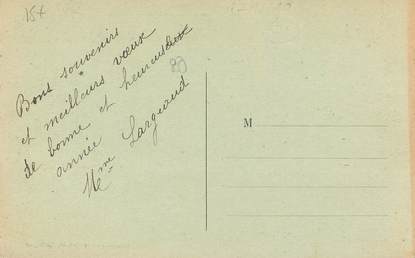 15 x
Bons souvenirs
et meilleurs vœux
de bonne et heureuse
année
Mme Largeaud
20
M